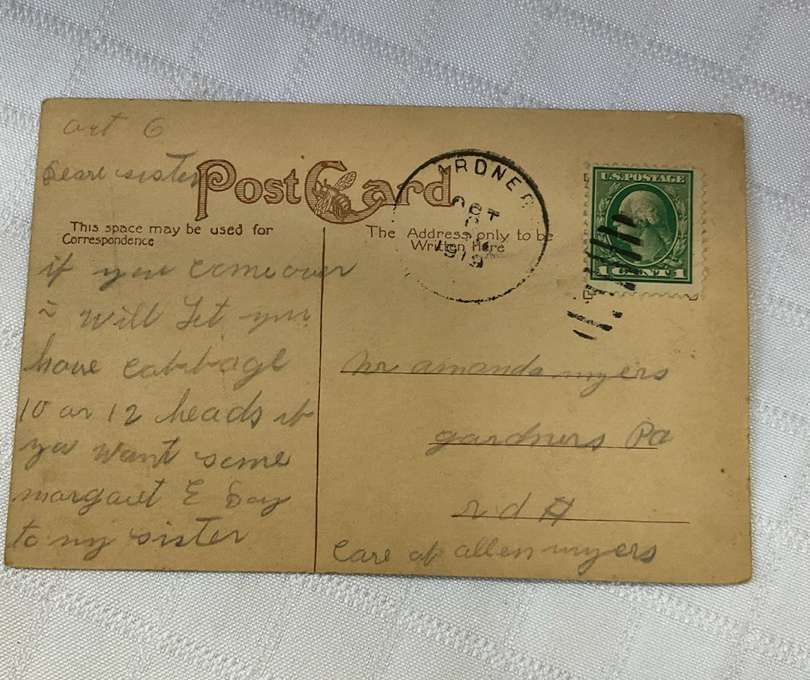 oct 6
Deare sister
Post Card
This space may be used for
Correspondence
The Address only to be
Written Here
ARDNE
OCT
1919
U.S. POSTAGE
1 CENT 1
if you come over
i will let you
have cabbage
10 or 12 heads if
you want some
margaret E Day
to my sister
amanda myers
gardners Pa
r d
Care of allen myers